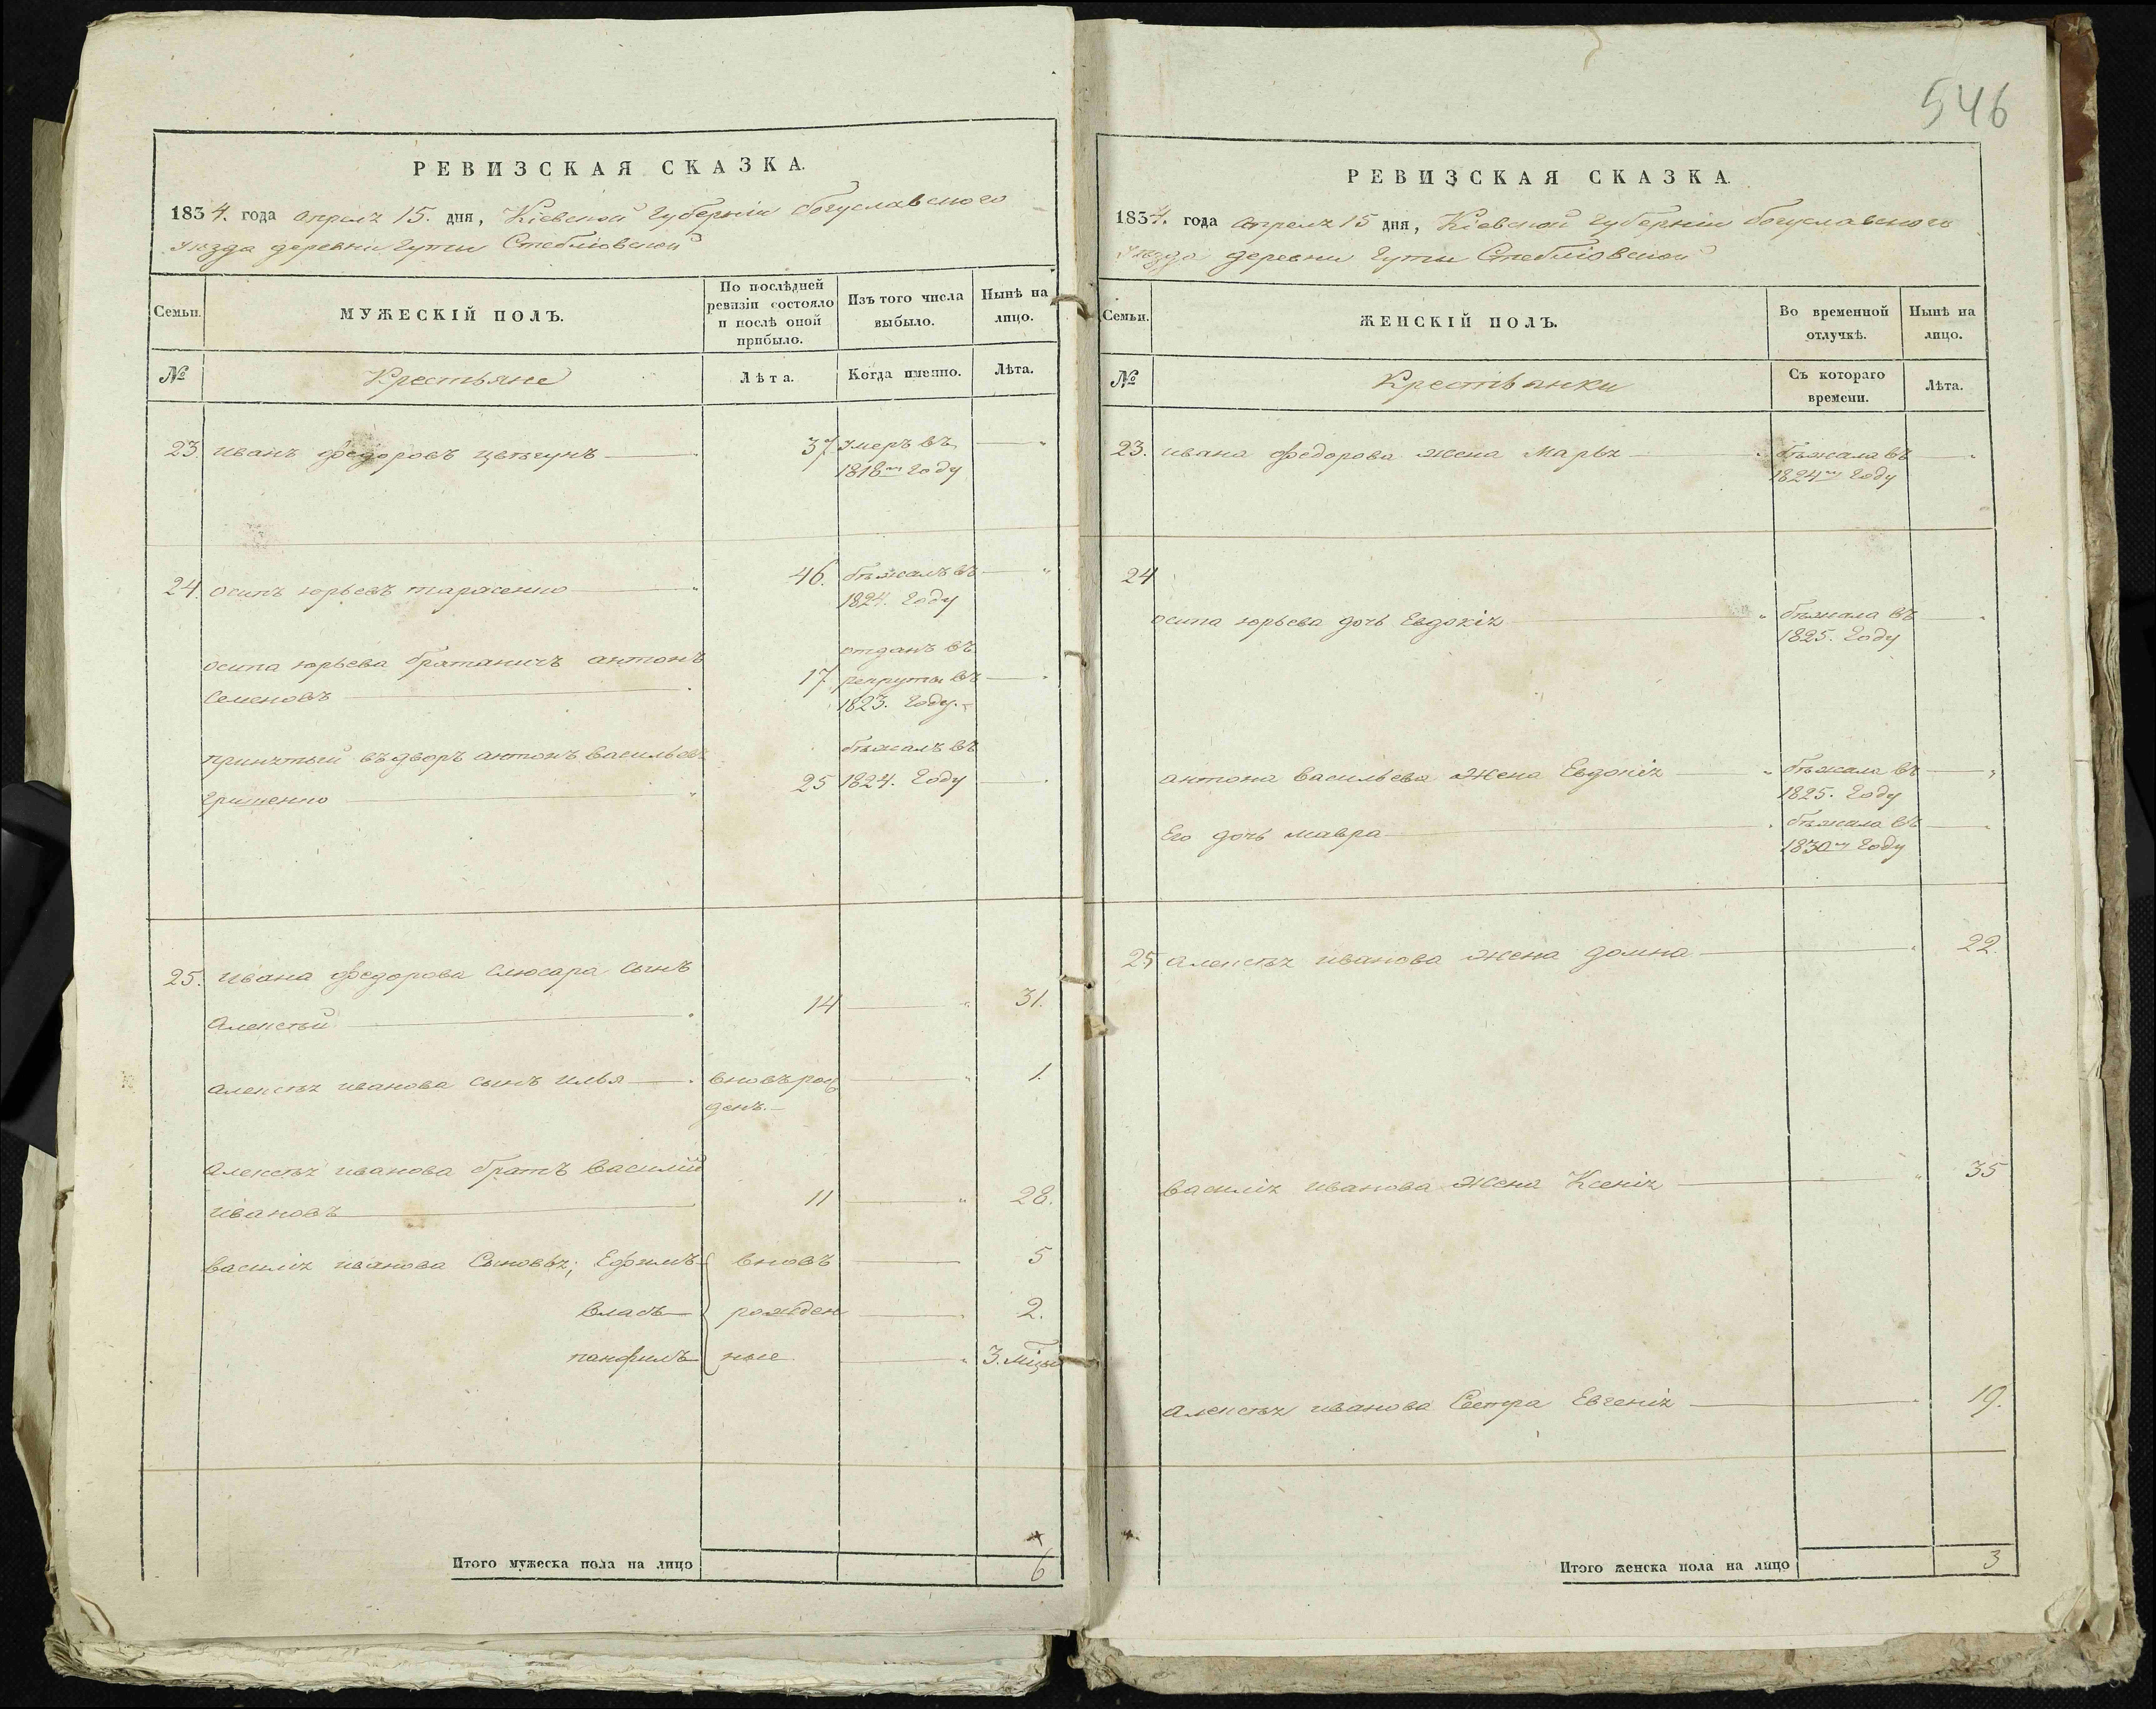 РЕВИЗСКАЯ СКАЗКА.
1834. года апреля 15. дня, Кіевской губерніи богуславского
уѣзда деревни Гуты Стебліовской
Семьи.
МУЖЕСКІЙ ПОЛЪ.
По послѣдней
ревизіи состояло
и послѣ оной
прибыло.
Изъ того числа
выбыло.
Нынѣ на
лицо.
№
Крестьяне
Лѣта.
Когда именно.
Лѣта.
23. иванъ федоровъ 37 умеръ въ
1818м году
24. осипъ юрьевъ тарасенко 46. бѣжалъ въ
1824. году
осипа юрьева братаничъ антонъ
семеновъ 17
отданъ въ
рекруты въ
1823. году.
принятый въ дворъ антонъ васильевъ
грищенко 25
бѣжалъ въ
1824. году
25. ивана федорова слюсара сынъ
алексѣй 14 31.
алексѣя иванова сынъ илья вновь рож
денъ. 1.
алексѣя иванова братъ василій
ивановъ 11 28.
василія иванова сыновья; Ефимъ вновь 5
власъ рожден 2.
панфилъ ные 3. мѣцы
Итого мужеска пола на лицо 6
546
РЕВИЗСКАЯ СКАЗКА.
1834. года апреля 15 дня, Кіевской губерніи богуславского
уѣзда деревни гуты Стебліовской
Семьи.
ЖЕНСКІЙ ПОЛЪ.
Во временной
отлучкѣ.
Нынѣ на
лицо.
№
Крестьянки
Съ котораго
времени.
Лѣта.
23. ивана федорова жена марья бѣжала въ
1824м году
24
осипа юрьева дочь евдокія бѣжала въ
1825. году
антона васильева жена Евдокія бѣжала въ
1825. году
Его дочь мавра бѣжала въ
1830м году
25 алексѣя иванова жена домна 22.
василія иванова жена Ксенія 35
алексѣя иванова сестра Евгенія 19.
Итого женска пола на лицо 3